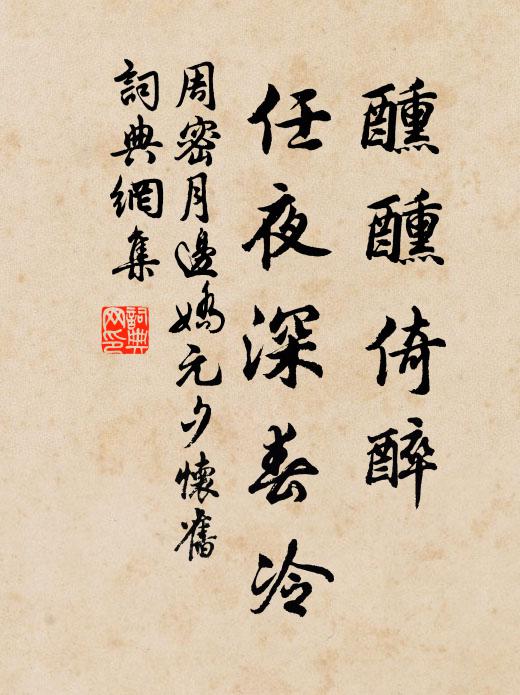 醺醺倚醉
任夜深春冷
周密月邊嬌元夕懷舊
詞典網集
詞典网印